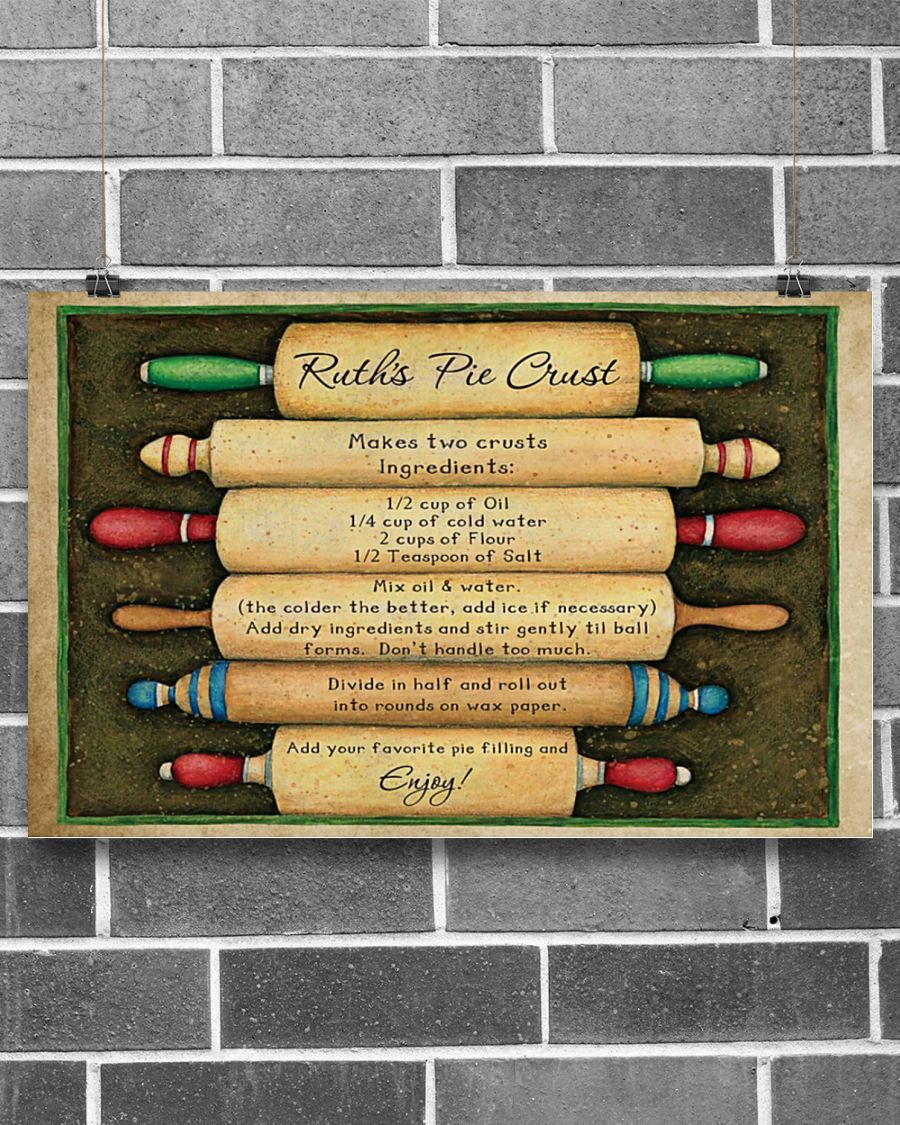 Ruth's Pie Crust
Makes two crusts
Ingredients:
1/2 cup of Oil
1/4 cup of cold water
2 cups of Flour
1/2 Teaspoon of Salt
Mix oil & water.
(the colder the better, add ice if necessary)
Add dry ingredients and stir gently til ball
forms. Don't handle too much.
Divide in half and roll out
into rounds on wax paper.
Add your favorite pie filling and
Enjoy!